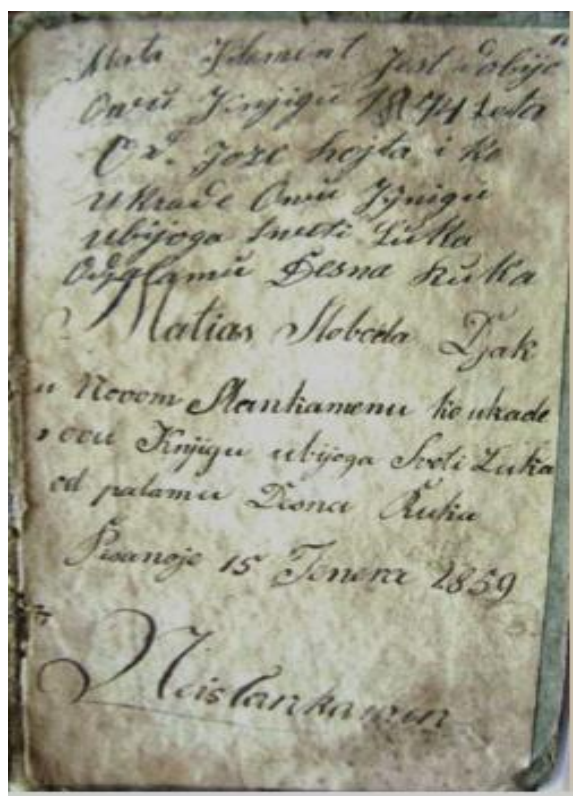 Mata Filament Jest dobije
Owu Knjigu 1874 Leta
Od. Joze hojta i ko
ukrade Owu Jgnigu
ubijoga Sweti Luka
Odglamu Desna Ruka
Matias Sloboda Djak
u Novom Slankamenu ko ukade
ovu Knjigu ubijoga Sveti Luka
od palamu Desna Ruka
Pisanoje 15 Jenera 1859
Neislankamen